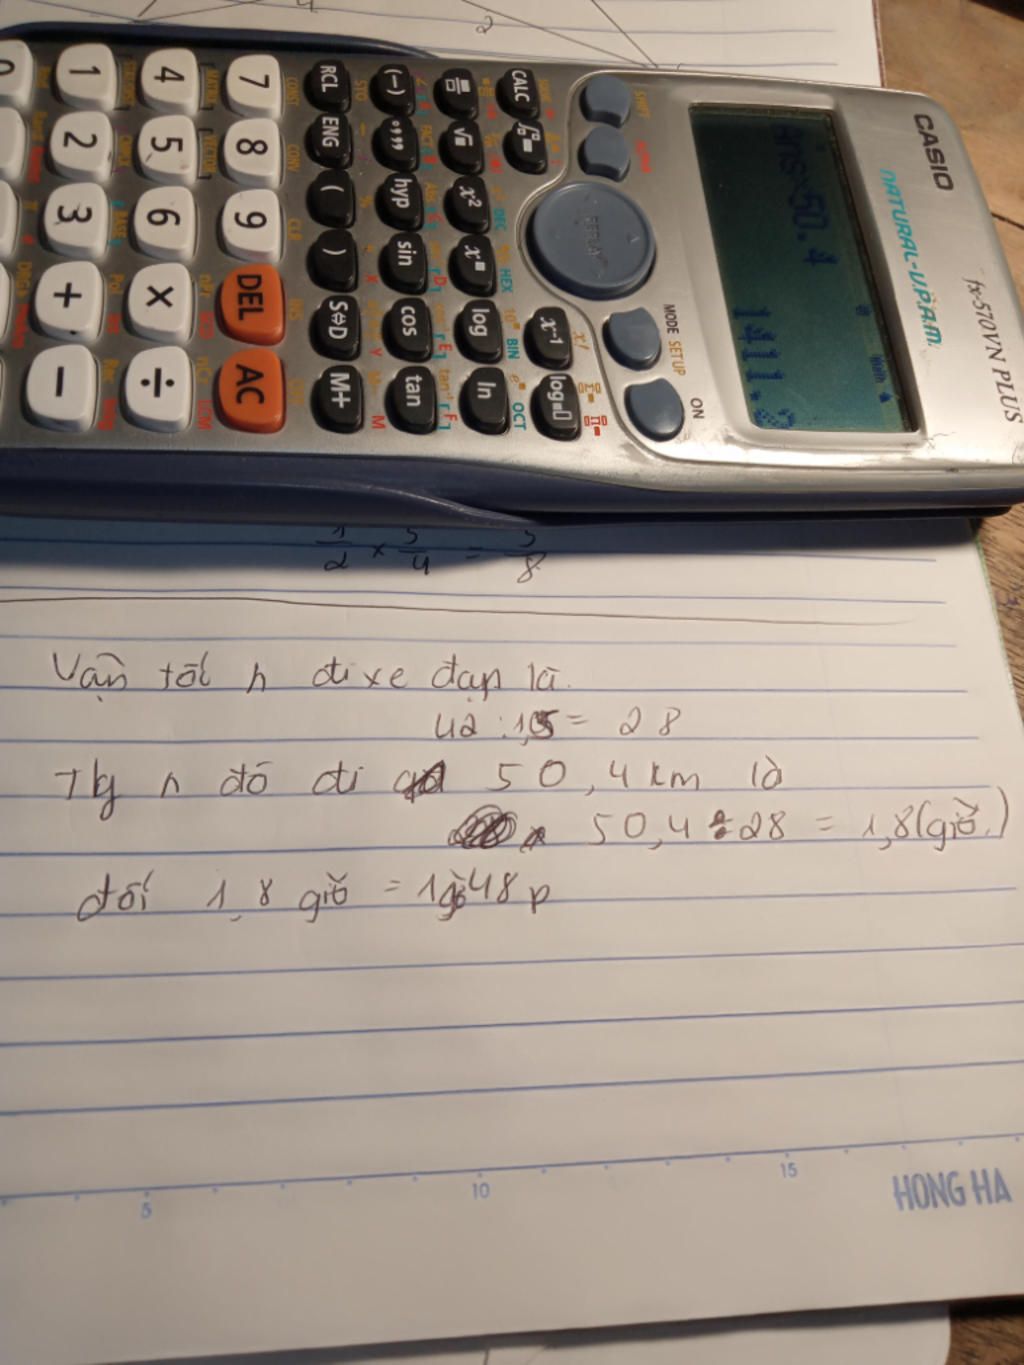 4
2
CASIO
fx-570VN PLUS
NATURAL-V.P.A.M.
Ans×50.4
1411.2
SHIFT
MODE SETUP
ON
CALC
x⁻¹
log
√
x²
log
ln
(−)
hyp
sin
cos
tan
RCL
ENG
(
)
S⇔D
M+
7
8
9
DEL
AC
4
5
6
×
÷
1
2
3
+
−
0
1/2 × 5/4 = 5/8
Vận tốc n đi xe đạp là.
42 : 1,5 = 28
Tg n đó đi 50,4 km là
50,4 : 28 = 1,8 (giờ.)
đổi 1,8 giờ = 1giờ 48 p
5
10
15
HONG HA